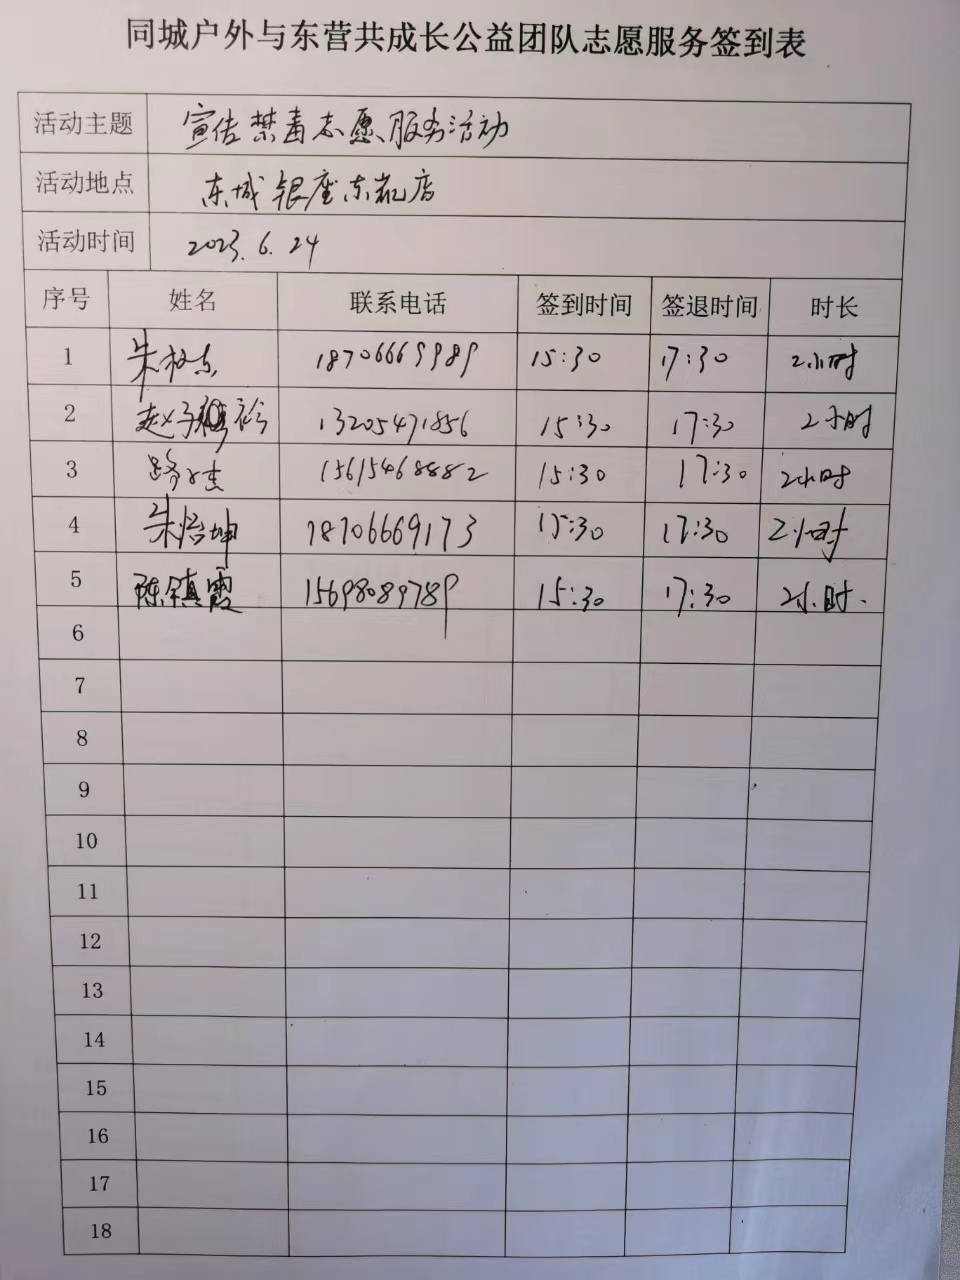 同城户外与东营共成长公益团队志愿服务签到表
活动主题 宣传禁毒志愿服务活动
活动地点 东城银座东凯店
活动时间 2023.6.24
序号 姓名 联系电话 签到时间 签退时间 时长
1 朱 18706669989 15:30 17:30 2小时
2 赵子 13205471856 15:30 17:30 2小时
3 路 15615468882 15:30 17:30 2小时
4 朱培坤 18706669173 15:30 17:30 2小时
5 陈镇霞 15698089789 15:30 17:30 2小时.
6
7
8
9
10
11
12
13
14
15
16
17
18